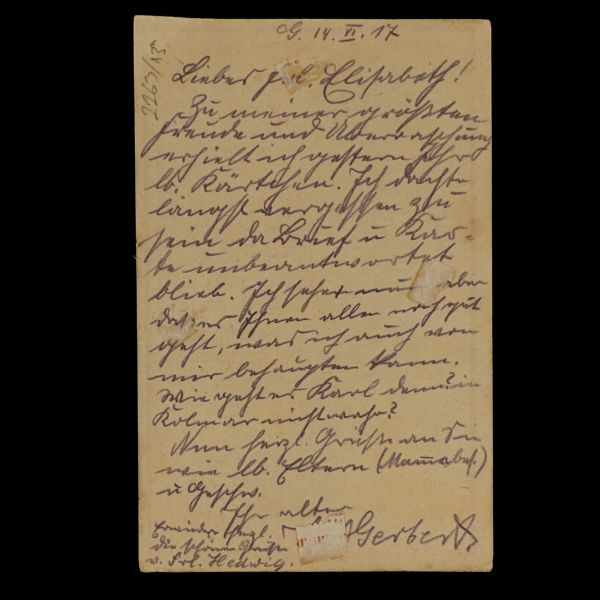 G. 14. VI. 17
2263/13
Liebes Frl. Elisabeth!
Zu meiner größten
Freude und Überraschung
erhielt ich gestern Ihr
lb. Kärtchen. Ich dachte
längst vergessen zu
sein da Brief u Kar-
te unbeantwortet
blieb. Ich sehe nun aber
daß es Ihnen allen noch gut
geht, was ich auch von
mir behaupten kann.
Wie geht es Karl denn? in
Kolmar nicht wahr?
Nun herzl. Grüße an Sie
wie lb. Eltern (Mama bes.)
u Geschw.
Ihr alter
Gerber
Erwidere herzl.
die schönen Grüße
v. Frl. Hedwig.